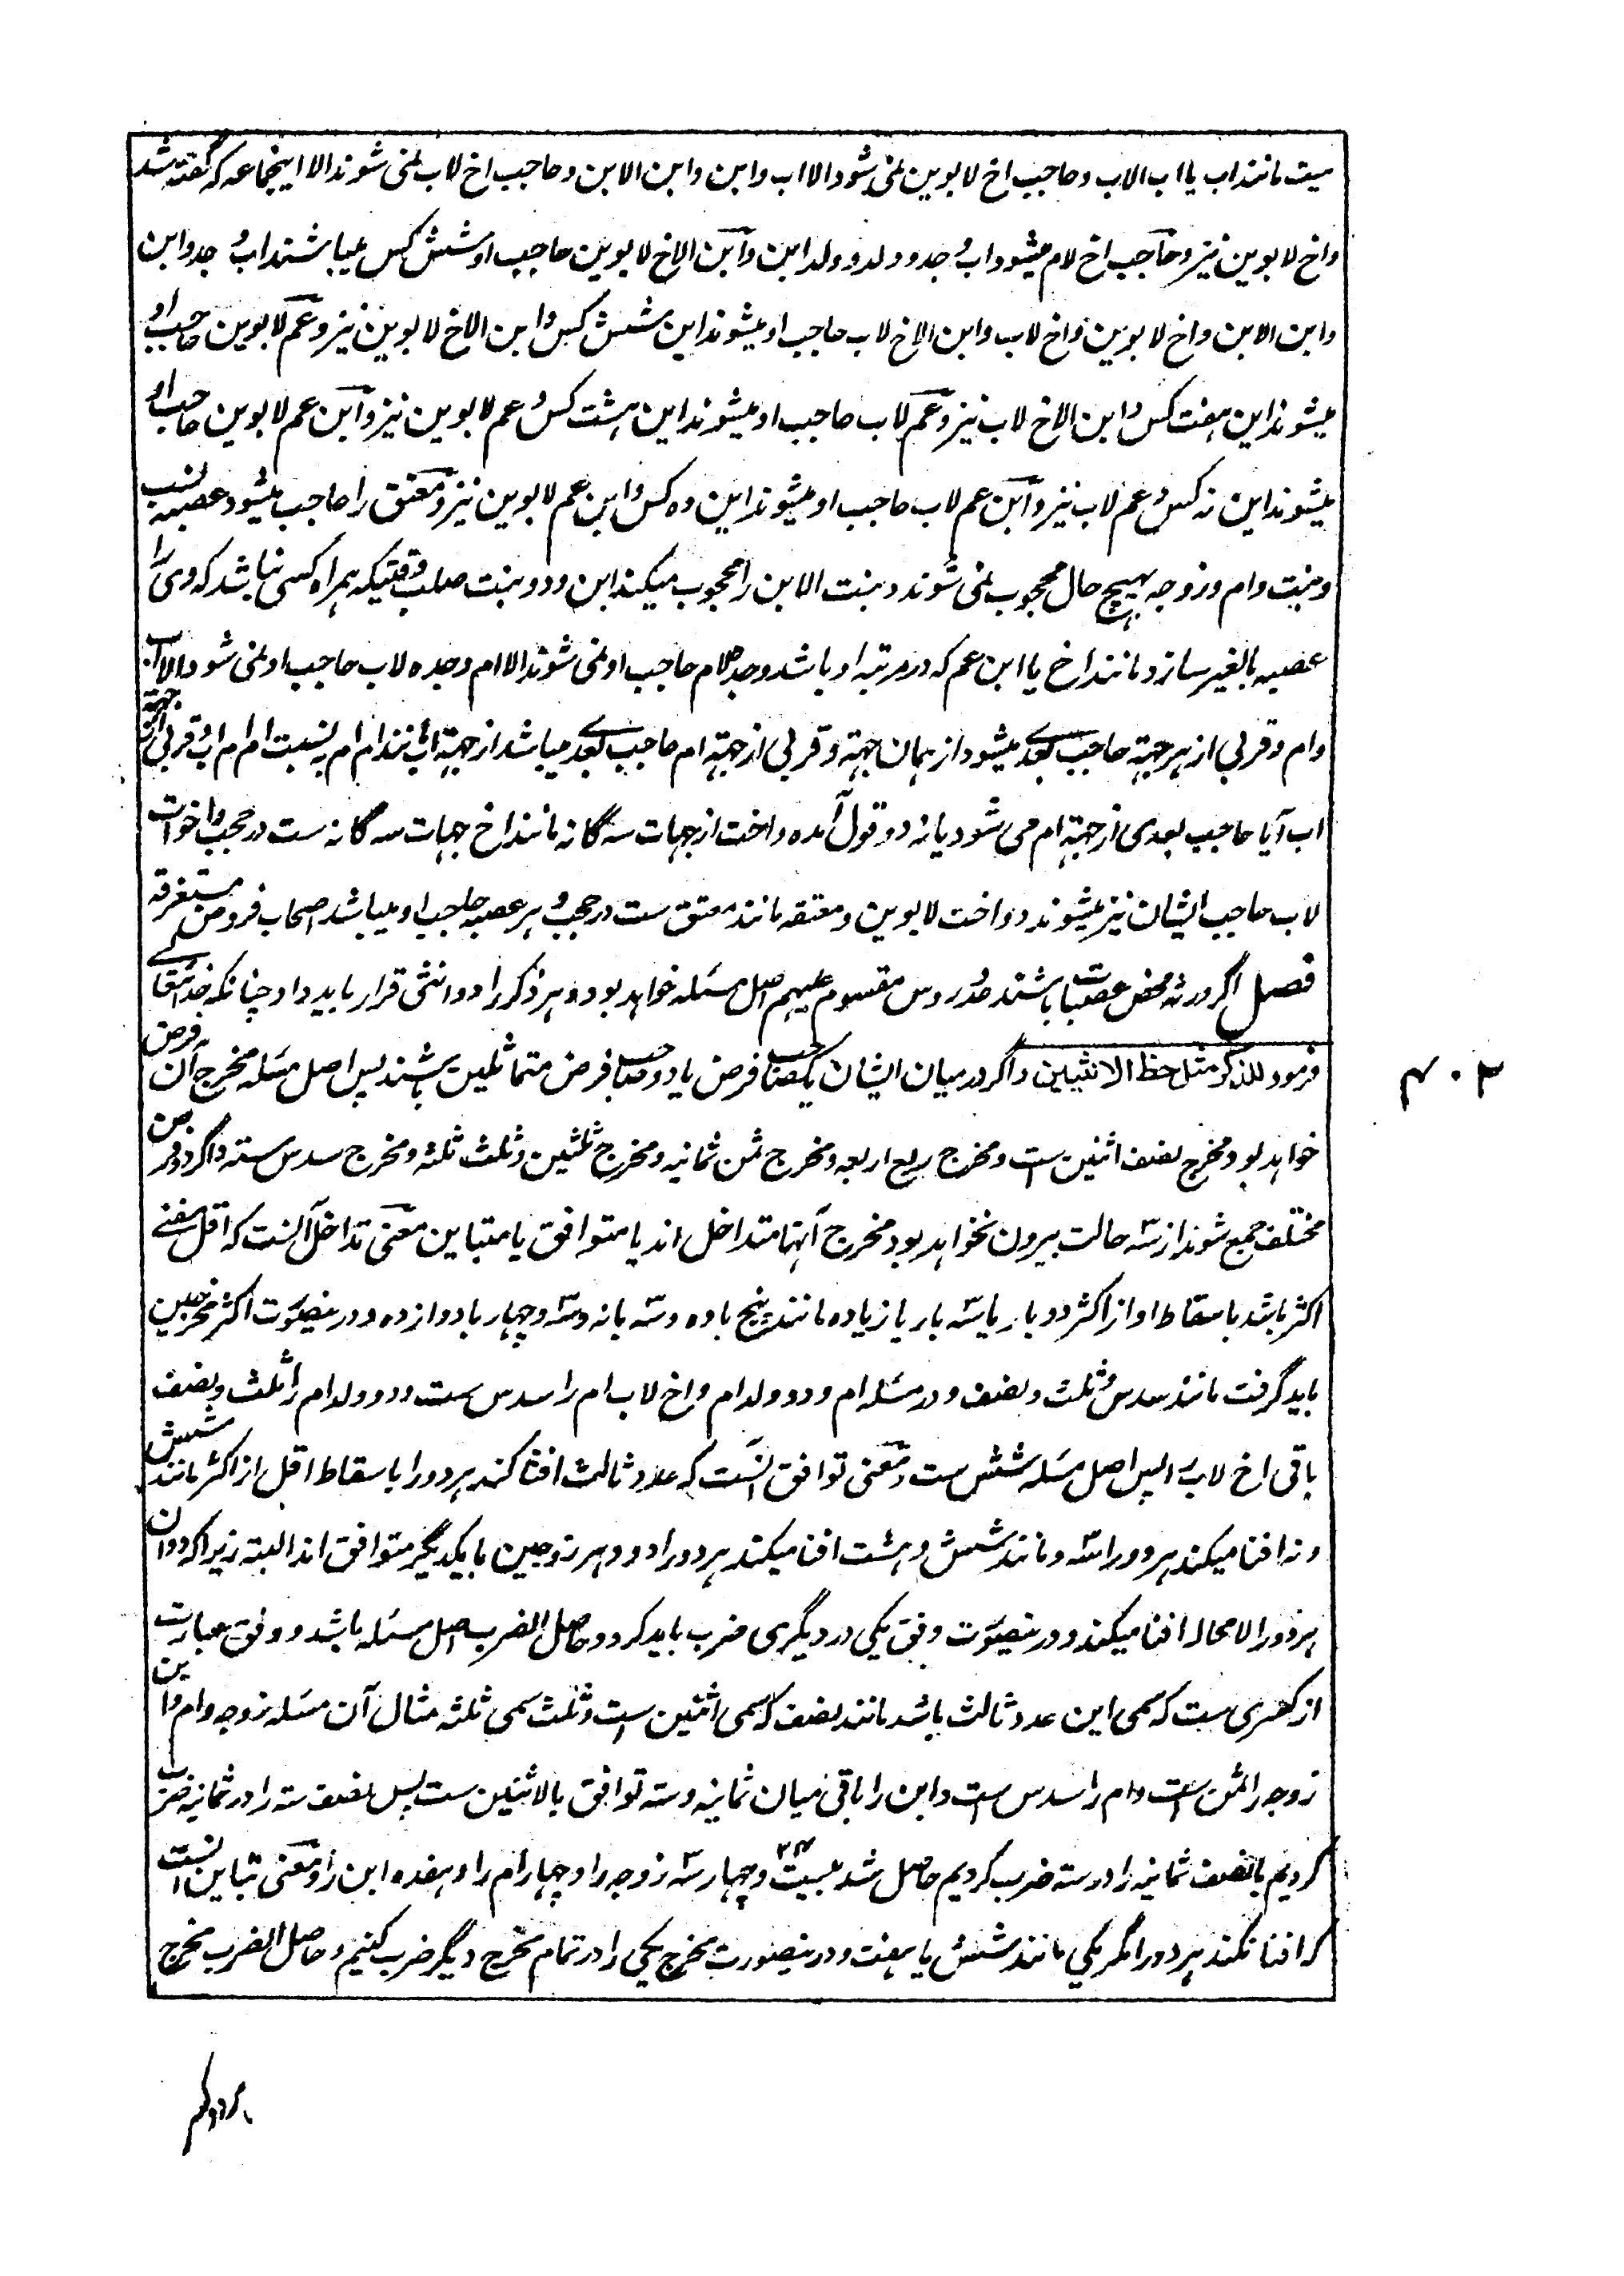 میت مانند اب یا اب الاب و حاجب اخ لابوین نمی شود الا اب و ابن و ابن الابن و حاجب اخ لاب نمی شوند الا اینجماعه که گفته شد
و اخ لابوین نیز و حاجب اخ لام میشود اب و جد و ولد و ولد ابن و ابن الاخ لابوین حاجب او شش کس میباشند اب و جد و ابن
و ابن الابن و اخ لابوین و اخ لاب و ابن الاخ لاب حاجب او میشوند این شش کس و ابن الاخ لابوین نیز و عم لابوین حاجب او
میشوند این هفت کس و ابن الاخ لاب نیز و عم لاب حاجب او میشوند این هشت کس و عم لابوین نیز و ابن عم لابوین حاجب او
میشوند این نه کس و عم لاب نیز و ابن عم لاب حاجب او میشوند این ده کس و ابن عم لابوین نیز و معتق را حاجب میشود عصبه نسب
و بنت و ام و زوجه بهیچ حال محجوب نمی شوند و بنت الابن را محجوب میکند ابن و دو بنت صلب وقتیکه همراه کسی نباشد که وی را
عصبه بالغیر سازد مانند اخ یا ابن عم که در مرتبه او باشد و جده لام حاجب او نمی شوند الا ام و جده لاب حاجب او نمی شود الا اب
و ام و قربی از هر جهة حاجب بعدی میشود از همان جهة و قربی از جهة ام حاجب بعدی میباشد از جهة اب مانند ام ام به نسبت ام ام اب و قربی از جهة
اب آیا حاجب بعدی از جهة ام می شود یا نه دو قول آمده و اخت از جهات سه گانه مانند اخ جهات سه گانه ست در حجب و اخوات
لاب حاجب ایشان نیز میشوند دو اخت لابوین و معتقه مانند معتق ست در حجب و هر عصبه حاجب او میباشد اصحاب فروض مستغرقه
فصل اگر ورثه محض عصبات باشند عدد رؤس مقسوم علیهم اصل مسئله خواهد بود و هر ذکر را دو انثی قرار باید داد چنانکه خدا تعالی
فرمود للذکر مثل حظ الانثیین و اگر در میان ایشان یک صاحب فرض یا دو صاحب فرض متماثلین باشند پس اصل مسئله مخرج آن فرض
خواهد بود و مخرج نصف اثنین ست و مخرج ربع اربعه و مخرج ثمن ثمانیه و مخرج ثلثین و ثلث ثلثه و مخرج سدس سته و اگر دو فرض
مختلف جمع شوند از سه حالت بیرون نخواهد بود مخرج آنها متداخل اند یا متوافق یا متباین معنی تداخل آنست که اقل مفنی
اکثر باشد باسقاط او از اکثر دو بار یا سه بار یا زیاده مانند پنج با ده و سه با نه و سه و چهار با دوازده و درینصورت اکثر مخرجین
باید گرفت مانند سدس و ثلث و نصف و در مسئله ام و دو ولد ام و اخ لاب ام را سدس ست و دو ولد ام را ثلث و نصف
باقی اخ لاب را پس اصل مسئله شش ست و معنی توافق آنست که عدد ثالث افنا کند هر دو را باسقاط اقل از اکثر مانند شش
و نه افنا میکند هر دو را سه و مانند شش و هشت افنا میکند هر دو را دو و هر زوجین با یکدیگر متوافق اند البته زیرا که دو آن
هر دو را لا محاله افنا میکند و درینصورت وفق یکی در دیگری ضرب باید کرد و حاصل الضرب اصل مسئله باشد و وفق عبارت
از کسری ست که سمی این عدد ثالث باشد مانند نصف که سمی اثنین است و ثلث سمی ثلثه مثال آن مسئله زوجه و ام و ابن
زوجه را ثمن است و ام را سدس است و ابن را باقی میان ثمانیه و سته توافق بالاثنین ست پس نصف سته را در ثمانیه ضرب
کردیم یا نصف ثمانیه را در سته ضرب کردیم حاصل شد بیست ۲۴ و چهار سه زوجه را و چهار ام را و هفده ابن را و معنی تباین آنست
که افنا نکند هر دو را مگر یکی مانند شش یا هفت و درینصورت مخرج یکی را در تمام مخرج دیگر ضرب کنیم و حاصل الضرب مخرج